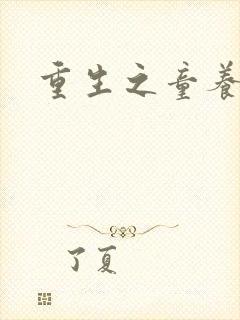 重生之童養
了夏